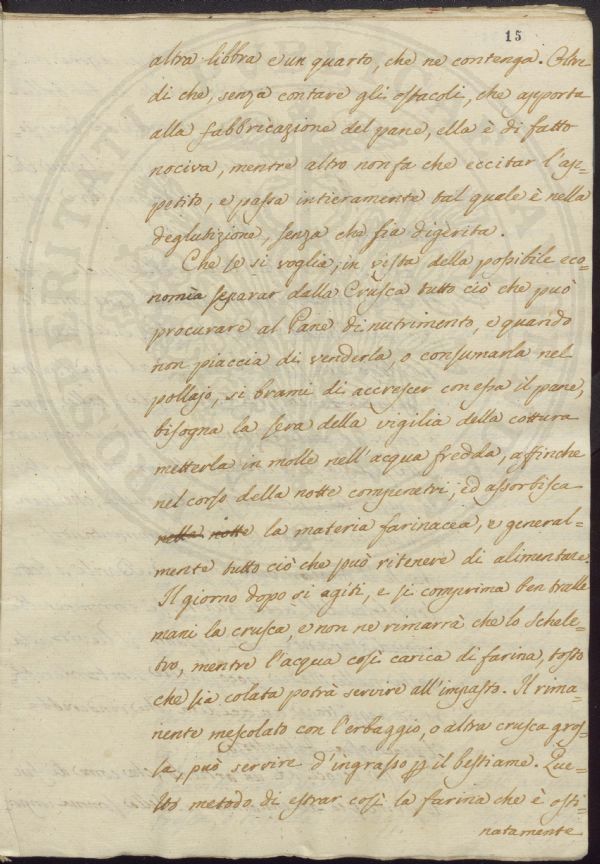 15
altra libbra e un quarto, che ne contenga. Oltre
di che, senza contare gli ostacoli, che apporta
alla fabbricazione del pane, ella è di fatto
nociva, mentre altro non fa che eccitar l'ap-
petito, e passa intieramente tal quale è nella
deglutizione, senza che sia digerita.
Che se si voglia, in vista della possibile eco-
nomia separar dalla Crusca tutto ciò che può
procurare al Pane di nutrimento, e quando
non piaccia di venderla, o consumarla nel
pollajo, si brami di accrescer con essa il pane,
bisogna la sera della vigilia della cottura
metterla in molle nell'acqua fredda, affinche
nel corso della notte compenetri, ed assorbisca
nella notte la materia farinacea, e general-
mente tutto ciò che può ritenere di alimentare.
Il giorno dopo si agiti, e si comprima ben tralle
mani la crusca, e non ne rimarrà che lo schele-
tro, mentre l'acqua così carica di farina, tosto
che sia colata potrà servire all'impasto. Il rima-
nente mescolato con l'erbaggio, o altra crusca gros-
sa, può servire d'ingrasso il bestiame. Que-
sto metodo di estrar così la farina che è osti-
natamente
PROSPERITATI PVBLICAE